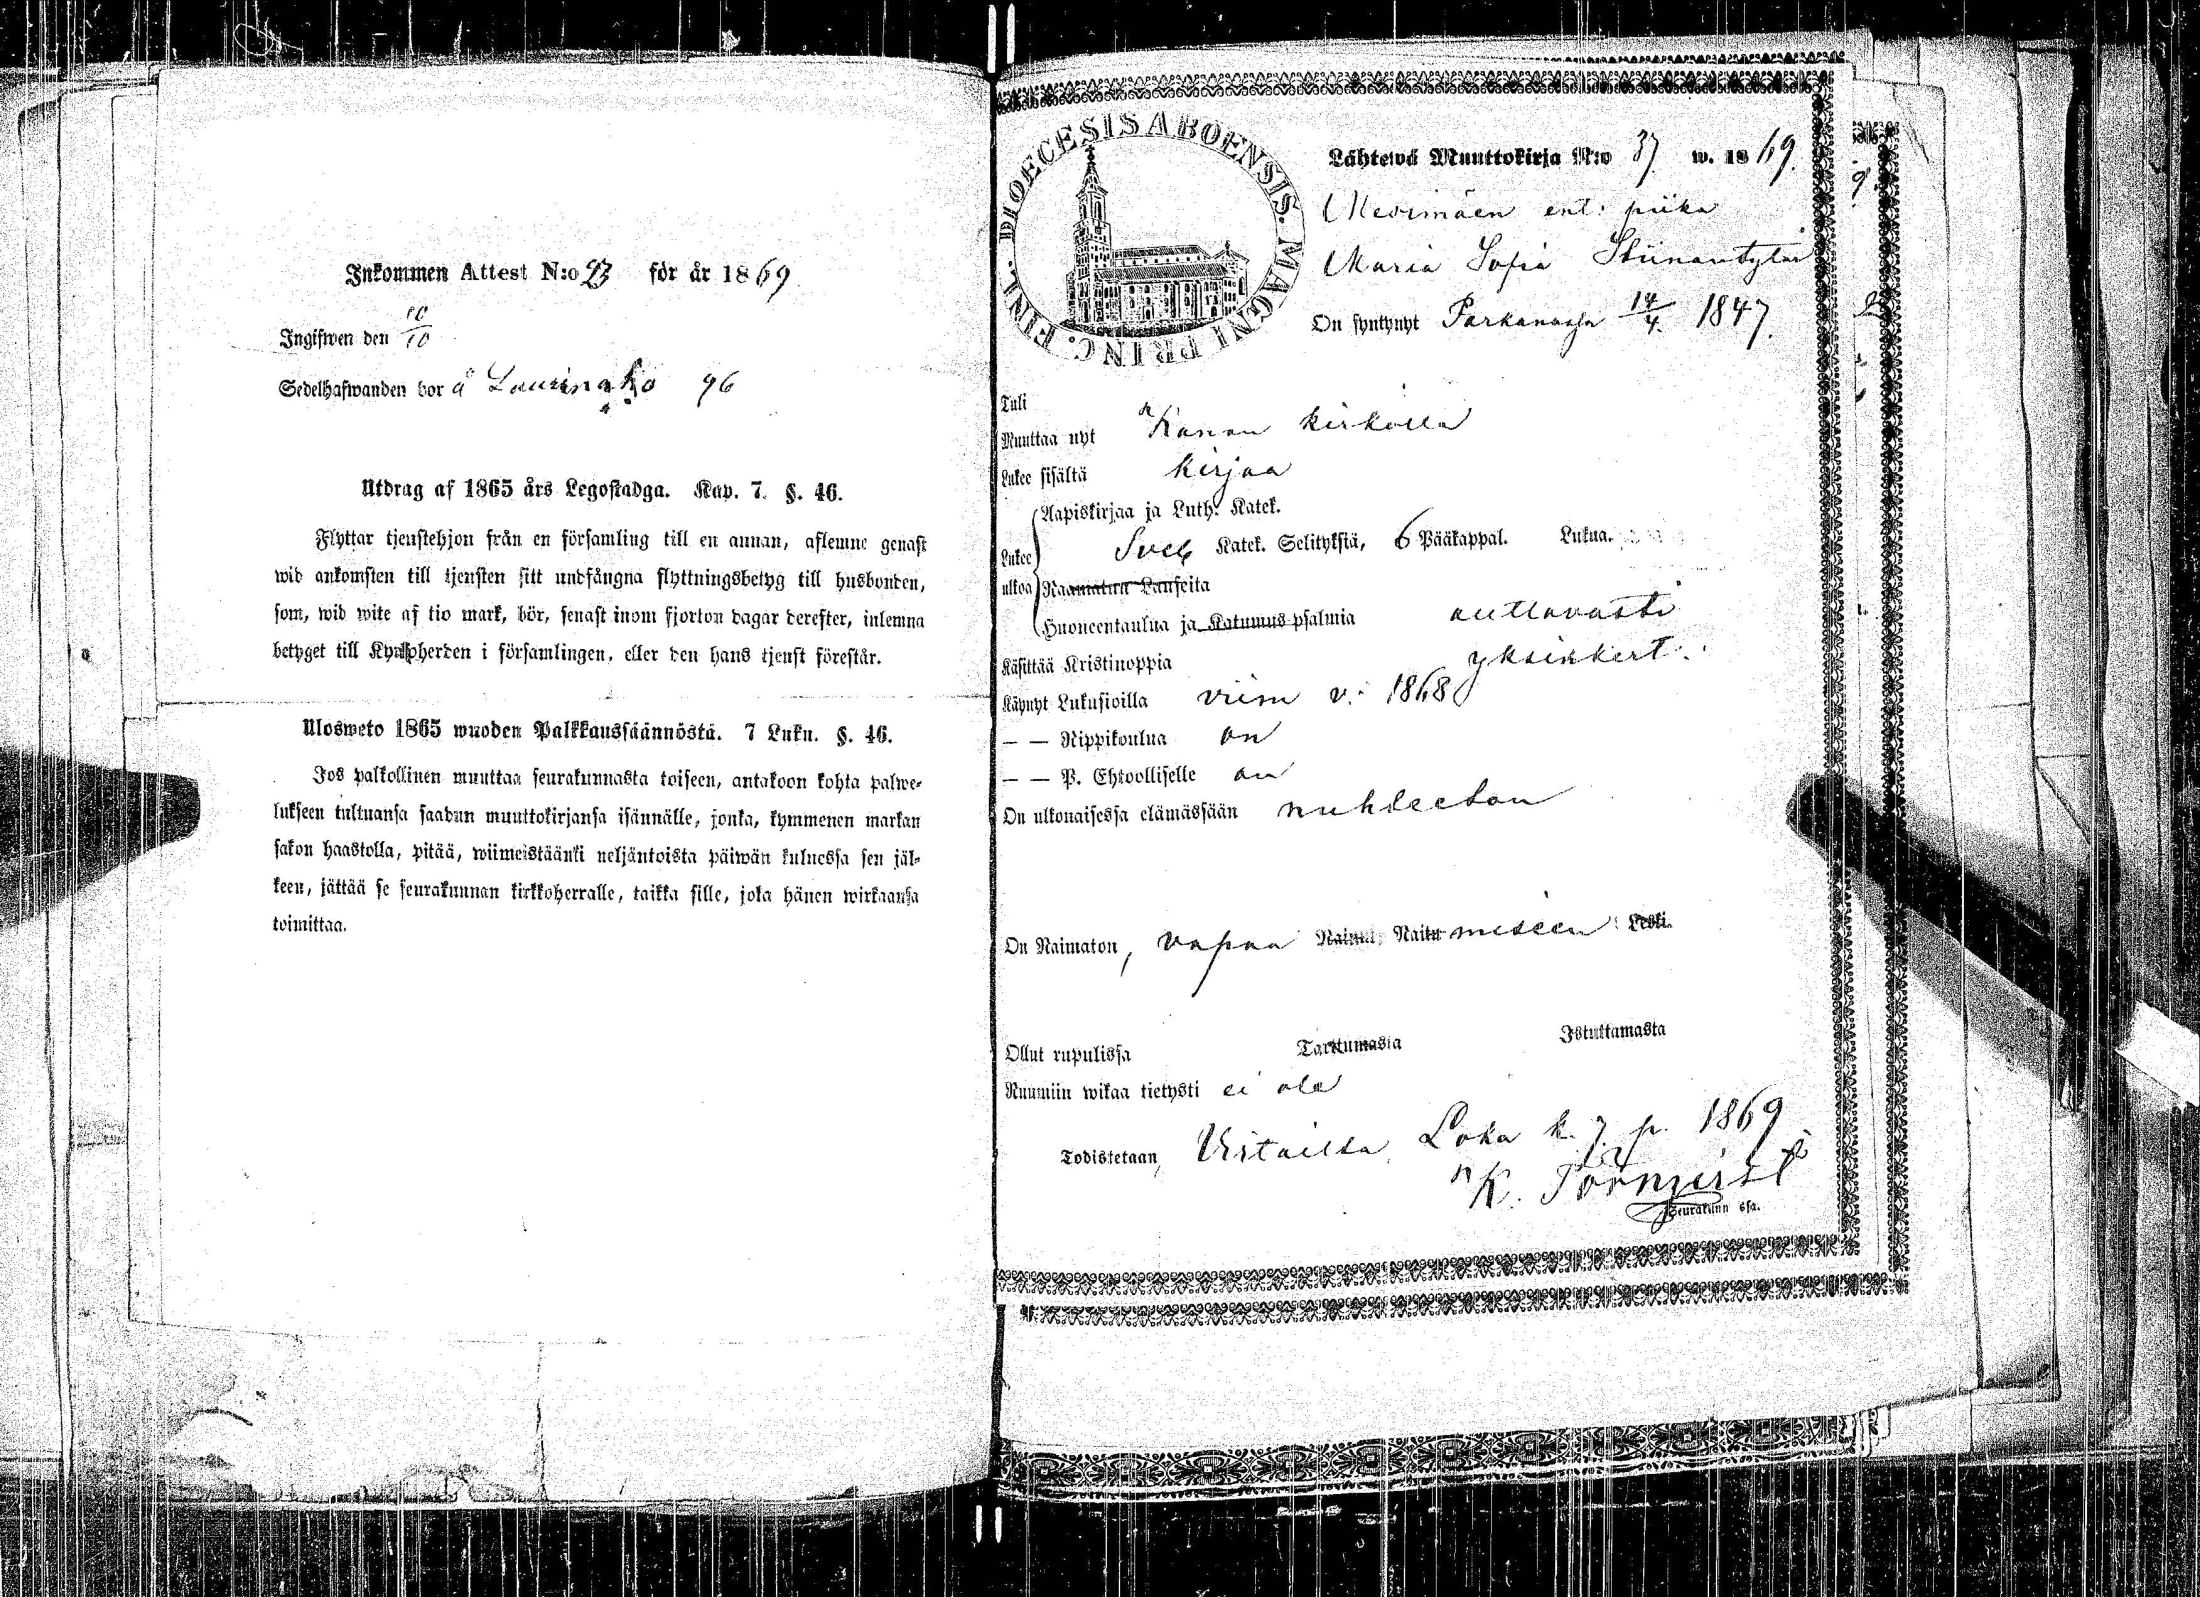 Inkommen Attest N:o 93 för år 1869
Ingifwen den 10/10
Sedelhafwanden bor å Laurinako 96
Utdrag af 1865 års Legostadga. Kap. 7. §. 46.
Flyttar tjenstehjon från en församling till en annan, aflemne genast
wid ankomsten till tjensten sitt undfångna flyttningsbetyg till husbonden,
som, wid wite af tio mark, bör, senast inom fjorton dagar derefter, inlemna
betyget till Kyrkoherden i församlingen, eller den hans tjenst förestår.
Ulosweto 1865 wuoden Palkkaussäännöstä. 7 Luku. §. 46.
Jos palkollinen muuttaa seurakunnasta toiseen, antakoon kohta palwe-
lukseen tultuansa saadun muuttokirjansa isännälle, jonka, kymmenen markan
sakon haastolla, pitää, wiimeistäänki neljäntoista päiwän kuluessa sen jäl-
keen, jättää se seurakunnan kirkkoherralle, taikka sille, joka hänen wirkaansa
toimittaa.
DIOECESIS ABOENSIS. MAGNI PRINC. FINL.
Lähtewä Muuttokirja N:o 37. w. 1869.
ent: piika
Maria Sofia
On syntynyt Parkanossa 14/4 1847.
Tuli
Muuttaa nyt kirkolla
Lukee sisältä kirjaa
Aapiskirjaa ja Luth. Katek.
Lukee ulkoa Sveb Katek. Selityksiä, 6 Pääkappal. Lukua.
Raamatun Lauseita
Huoneentaulua ja Katumus psalmia auttavasti
Käsittää Kristinoppia yksinkert.
Käynyt Lukusioilla viim v: 1868
— — Rippikoulua on
— — P. Ehtoolliselle on
On ulkonaisessa elämässään nuhteeton
On Naimaton, vapaa Nainut, Naitu miseen Leski.
Ollut rupulissa Tarttumasta Istuttamasta
Ruumiin wikaa tietysti ei ole
Todistetaan, Loka k. 7. p. 1869
K. Törnqvist
Seurakunn ssa.